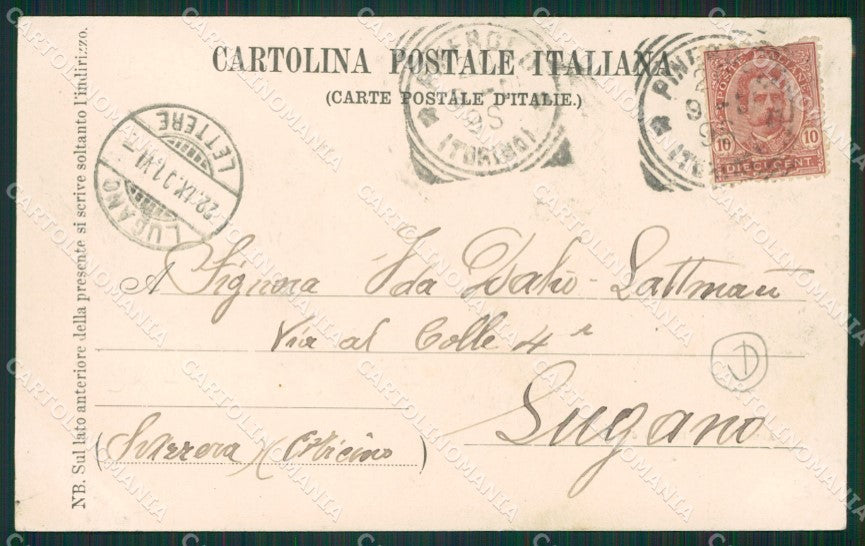 CARTOLINA POSTALE ITALIANA
(CARTE POSTALE D'ITALIE.)
PINEROLO
(TORINO)
PINEROLO
POSTE ITALIANE
10 10
DIECI CENT.
LETTERE
22.IX.01.VI
LUGANO
A Signora Ida Lattmann
Via al Colle 4
Lugano
(Svizzera) (Ticino)
D
NB. Sul lato anteriore della presente si scrive soltanto l'indirizzo.
CARTOLINOMANIA